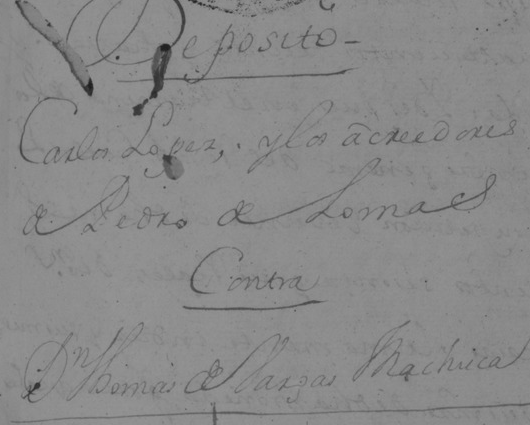 Deposito -
Carlos Lopez, y los acreedores
de Pedro de Lomas
Contra
Dn Thomas de Vargas Machuca